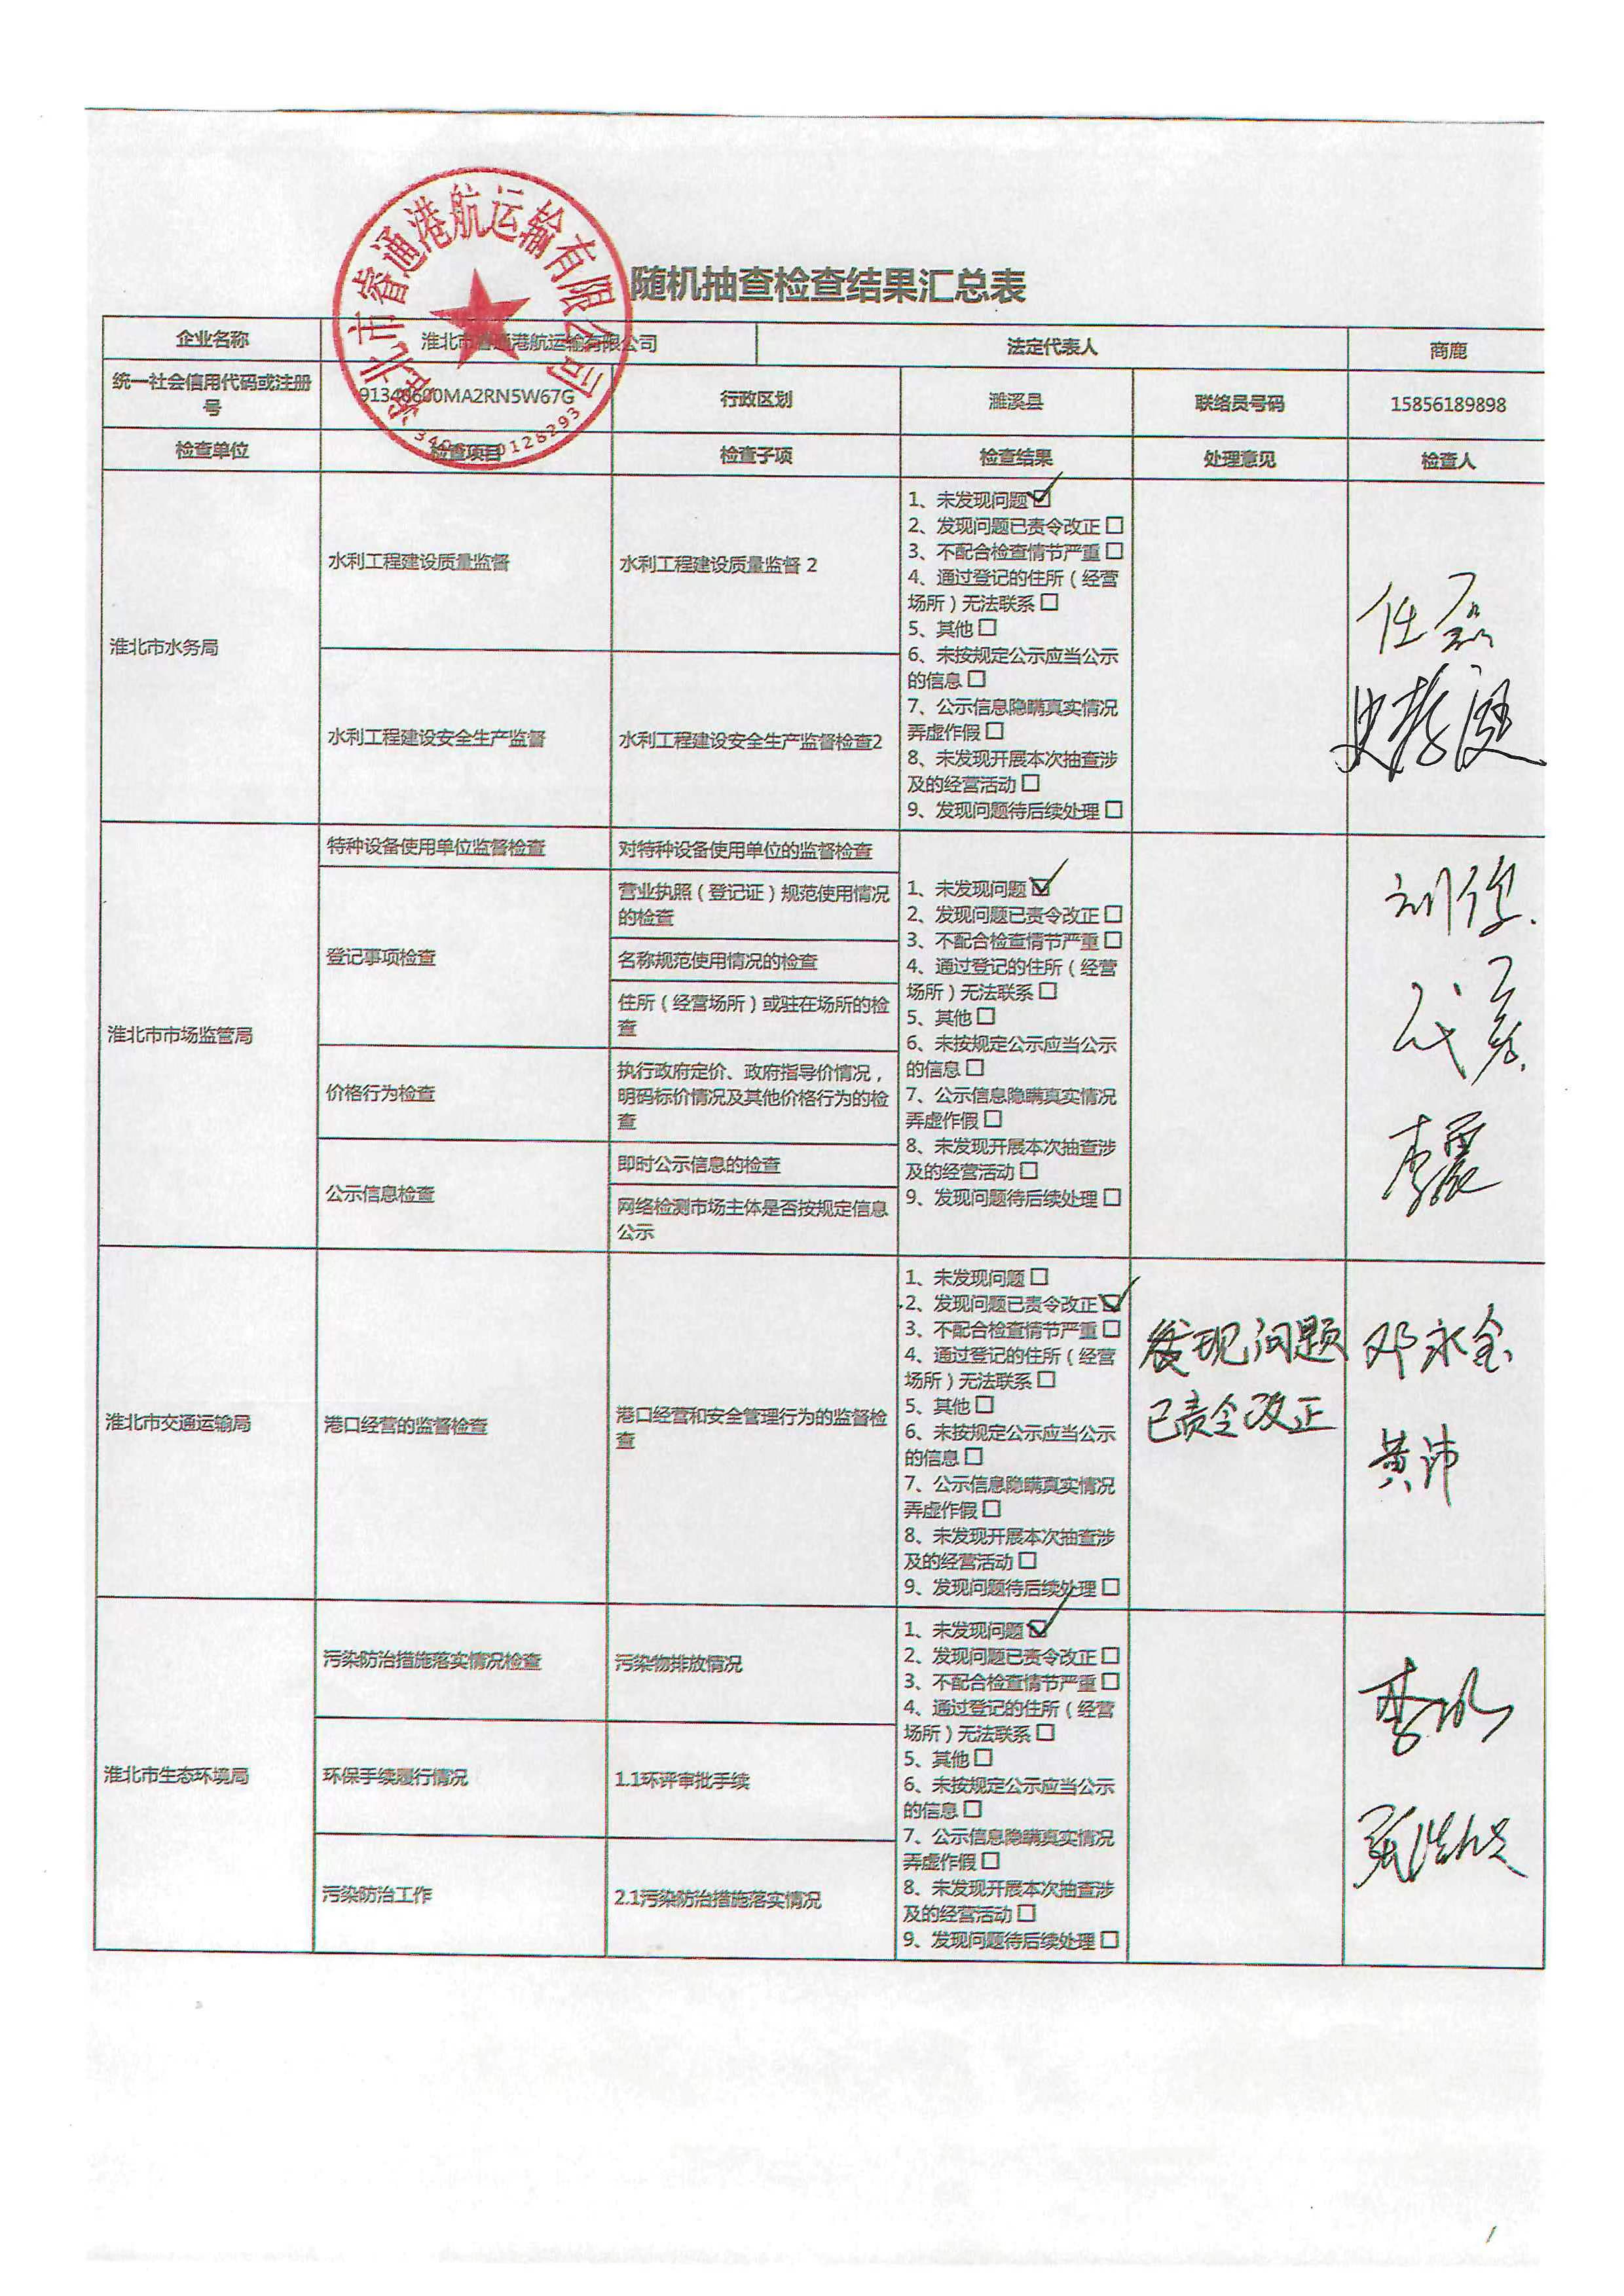 淮北市睿通港航运输有限公司
随机抽查检查结果汇总表
企业名称
淮北市睿通港航运输有限公司
法定代表人
商鹿
统一社会信用代码或注册
号
91340600MA2RN5W67G
行政区划
濉溪县
联络员号码
15856189898
检查单位
检查项目
检查子项
检查结果
处理意见
检查人
淮北市水务局
水利工程建设质量监督
水利工程建设质量监督 2
水利工程建设安全生产监督
水利工程建设安全生产监督检查2
1、未发现问题☑
2、发现问题已责令改正☐
3、不配合检查情节严重☐
4、通过登记的住所（经营
场所）无法联系☐
5、其他☐
6、未按规定公示应当公示
的信息☐
7、公示信息隐瞒真实情况
弄虚作假☐
8、未发现开展本次抽查涉
及的经营活动☐
9、发现问题待后续处理☐
任磊
淮北市市场监管局
特种设备使用单位监督检查
对特种设备使用单位的监督检查
登记事项检查
营业执照（登记证）规范使用情况
的检查
名称规范使用情况的检查
住所（经营场所）或驻在场所的检
查
价格行为检查
执行政府定价、政府指导价情况，
明码标价情况及其他价格行为的检
查
公示信息检查
即时公示信息的检查
网络检测市场主体是否按规定信息
公示
1、未发现问题☑
2、发现问题已责令改正☐
3、不配合检查情节严重☐
4、通过登记的住所（经营
场所）无法联系☐
5、其他☐
6、未按规定公示应当公示
的信息☐
7、公示信息隐瞒真实情况
弄虚作假☐
8、未发现开展本次抽查涉
及的经营活动☐
9、发现问题待后续处理☐
李震
淮北市交通运输局
港口经营的监督检查
港口经营和安全管理行为的监督检
查
1、未发现问题☐
2、发现问题已责令改正☑
3、不配合检查情节严重☐
4、通过登记的住所（经营
场所）无法联系☐
5、其他☐
6、未按规定公示应当公示
的信息☐
7、公示信息隐瞒真实情况
弄虚作假☐
8、未发现开展本次抽查涉
及的经营活动☐
9、发现问题待后续处理☐
发现问题
已责令改正
邓永全
黄沛
淮北市生态环境局
污染防治措施落实情况检查
污染物排放情况
环保手续履行情况
1.1环评审批手续
污染防治工作
2.1污染防治措施落实情况
1、未发现问题☑
2、发现问题已责令改正☐
3、不配合检查情节严重☐
4、通过登记的住所（经营
场所）无法联系☐
5、其他☐
6、未按规定公示应当公示
的信息☐
7、公示信息隐瞒真实情况
弄虚作假☐
8、未发现开展本次抽查涉
及的经营活动☐
9、发现问题待后续处理☐